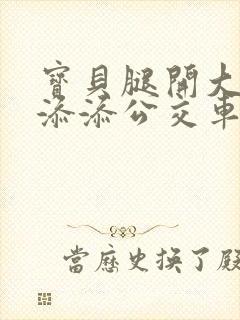 寶貝腿開大
添添公交車
當歷史換了殿